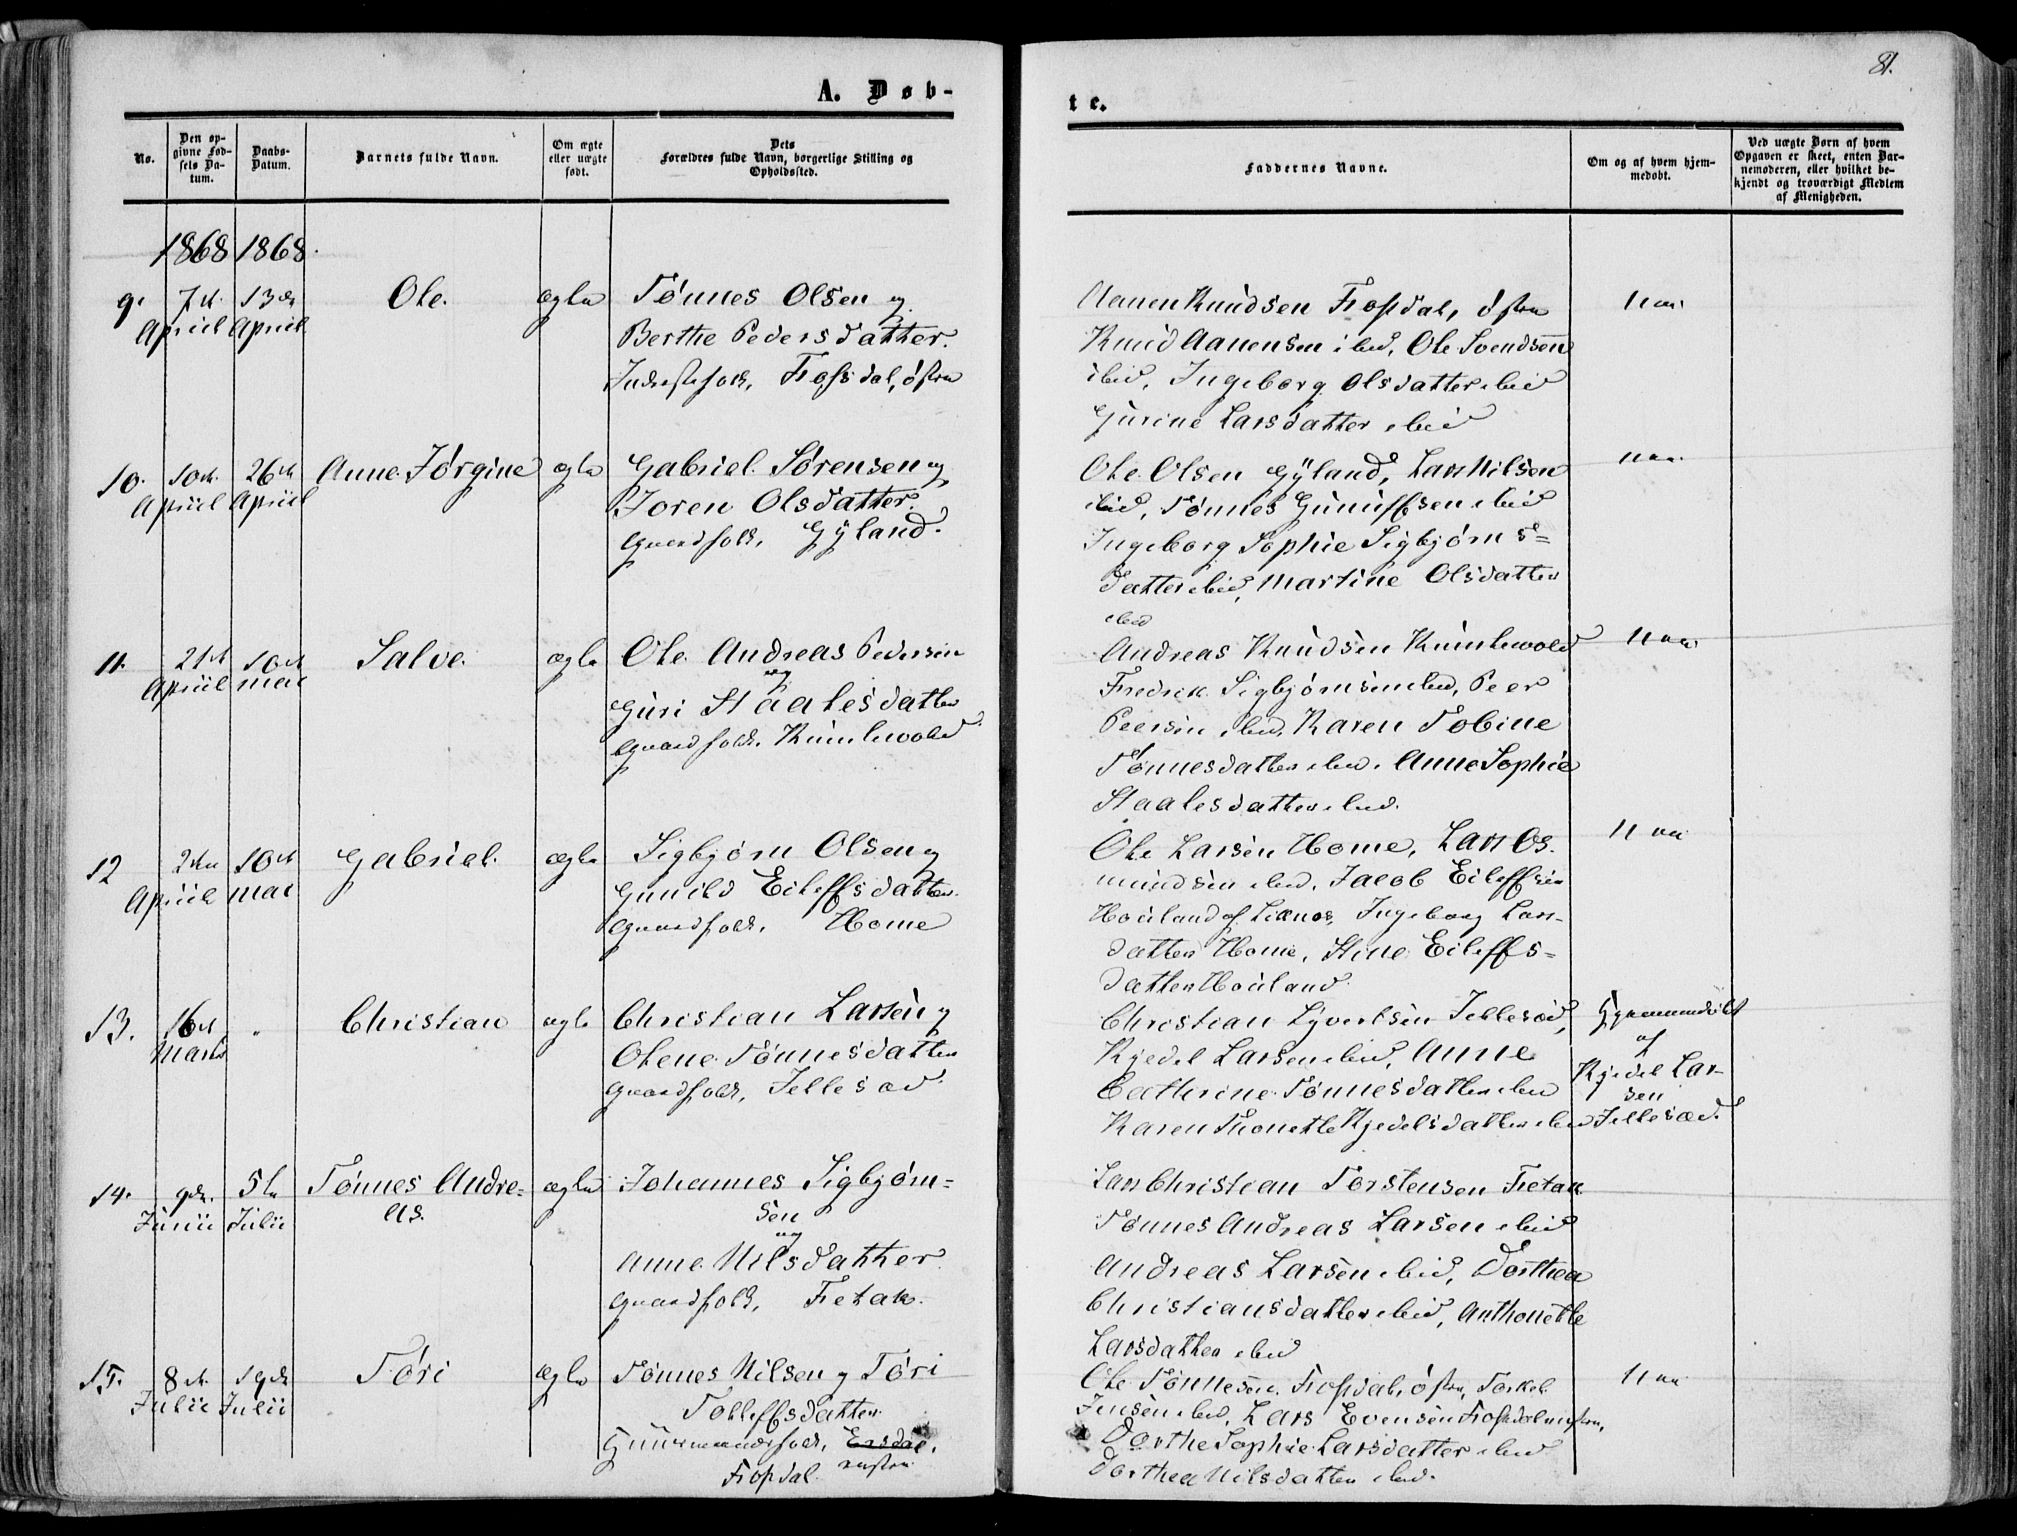 81.
A. Døb-
te.
No.
Den op-
givne Fød-
sels Da-
tum.
Daabs-
Datum.
Barnets fulde Navn.
Om ægte
eller uægte
født.
Dets
Forældres fulde Navn, borgerlige Stilling og
Opholdssted.
Faddernes Navne.
Om og af hvem hjem-
medøbt.
Ved uægte Børn af hvem
Opgaven er skeet, enten Bar-
nemoderen, eller hvilket be-
kjendt og troværdigt Medlem
af Menigheden.
1868 1868.
9. 7de 13de Ole. ægte Tønnes Olsen og
April April Berthe Pedersdatter.
Inderstefolk, Fossdal, østre
Aanen Knudsen Fossdal, østre
Knud Aanensen ibid, Ole Svendsen
ibid, Ingeborg Olsdatter ibid
Gurine Larsdatter ibid
10. 10de 26de Anne Jørgine ægte Gabriel Sørensen og
April April Joren Olsdatter.
Gaardfolk, Gyland.
Ole Olsen Gyland, Lars Nilsen
ibid, Tønnes Gunulfsen ibid
Ingeborg Sophie Sigbjørns=
datter ibid, Martine Olsdatter
ibid
11. 21de 10de Salve. ægte Ole Andreas Pedersen
April Mai og
Guri Staalesdatter
Gaardfolk.
Andreas Knudsen
Fredrik Sigbjørnsen ibid, Peer
Peersen ibid, Karen Tobine
Tønnesdatter ibid, Anne Sophie
Staalesdatter ibid.
12 2den 10de Gabriel. ægte Sigbjørn Olsen og
April Mai Gunild Eileffsdatter
Gaardfolk, Home
Ole Larsen Home, Lars Os-
mundsen ibid, Jacob Eileffsen
Houland af Liknes, Ingeborg Lars-
datter Home, Stine Eileffs-
datter Houland.
13. 16de " Christian ægte Christian Larsen og
Marts Olene Tønnesdatter
Gaardfolk, Jellesæd.
Christian Syvertsen Jellesæd,
Kjedel Larsen ibid, Anne
Cathrine Tønnesdatter ibid
Karen Thonette Kjedelsdatter ibid
Hjemmedøbt
af
Kjedel Lar-
sen
Jellesæd.
14. 9de 5te Tønnes Andre= ægte Johannes Sigbjørn=
Junii Julii as. sen
og
Anne Nilsdatter
Gaardfolk, Fretak.
Lars Christian Torstensen Fretak
Tønnes Andreas Larsen ibid
Andreas Larsen ibid, Dorthea
Christiansdatter ibid, Anthonette
Larsdatter ibid
15. 8de 19de Tøri ægte Tønnes Nilsen og Tøri
Julii Julii Tolleffsdatter
Fossdal
Ole Tønnesen Fossdal, østre, Torkel
Jensen ibid, Lars Evensen Fossdal
Dorthe Sophie Larsdatter ibid
Dorthea Nilsdatter ibid.